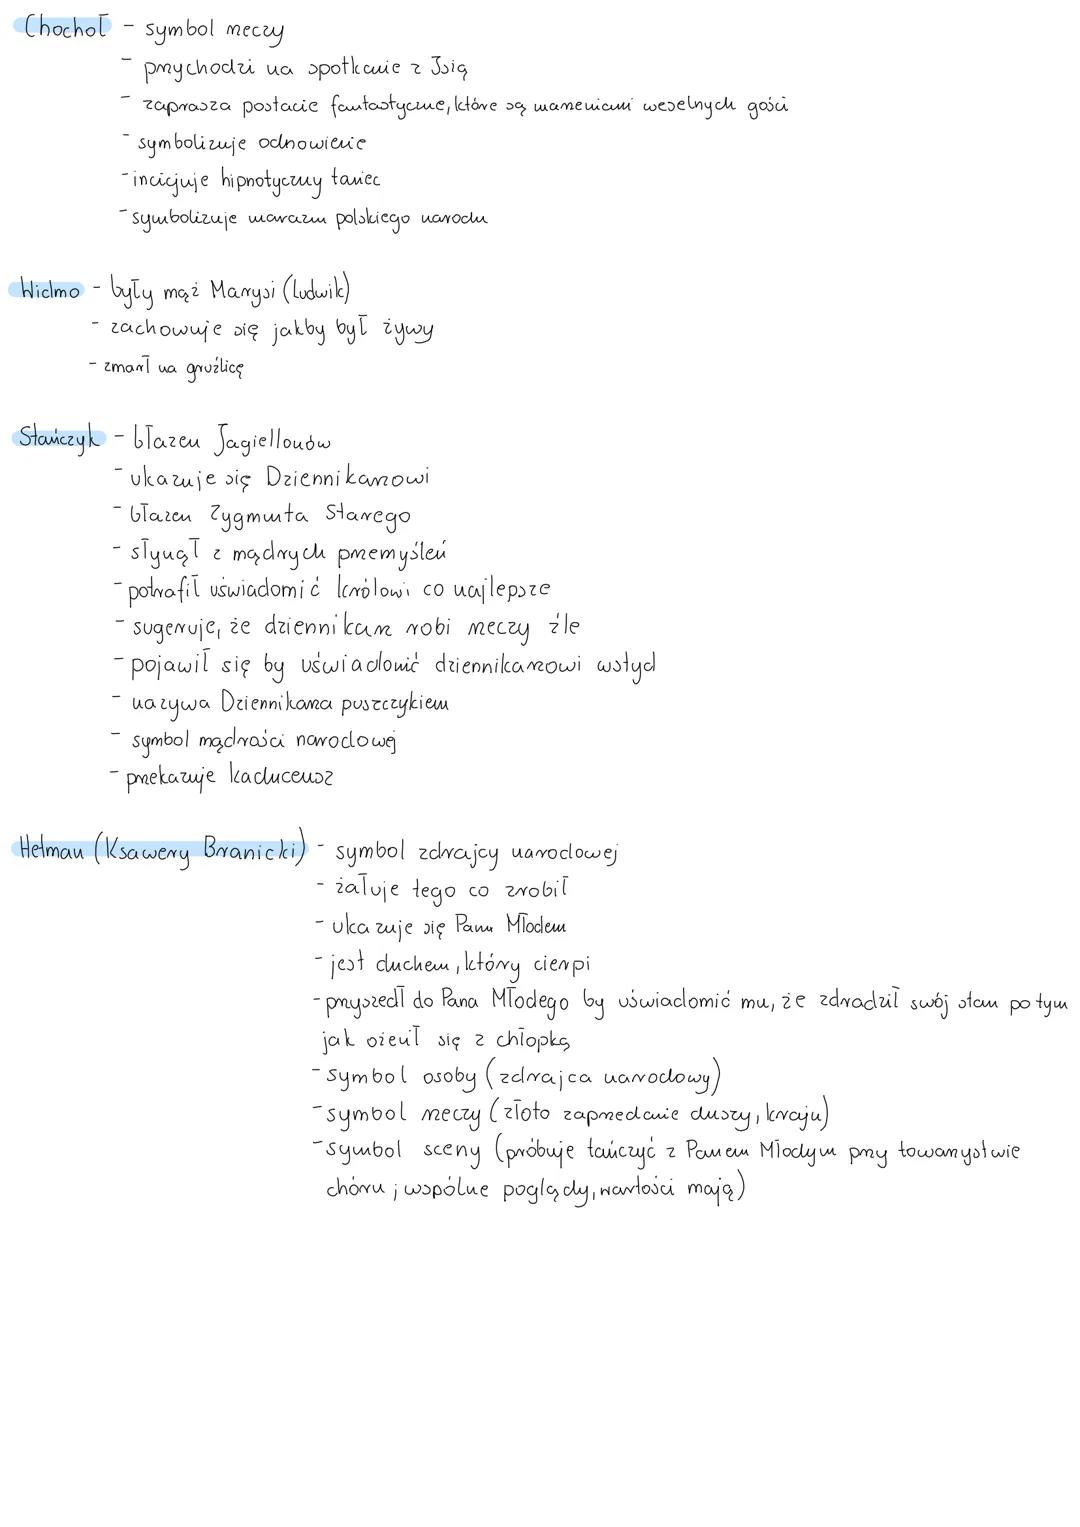 Chochoł - symbol rzeczy
- przychodzi na spotkanie z Isią
- zaprasza postacie fantastyczne, które są marzeniami weselnych gości
- symbolizuje odnowienie
- incicjuje hipnotyczny taniec
- symbolizuje marazm polskiego narodu
Widmo - były mąż Marysi (Ludwik)
- zachowuje się jakby był żywy
- zmarł na gruźlicę
Stańczyk - błazen Jagiellonów
- ukazuje się Dziennikarzowi
- błazen Zygmunta Starego
- słynął z mądrych przemyśleń
- potrafił uświadomić królowi co najlepsze
- sugeruje, że dziennikarz robi rzeczy źle
- pojawił się by uświadomić dziennikarzowi wstyd
- nazywa Dziennikarza puszczykiem
- symbol mądrości narodowej
- przekazuje kaduceusz
Hetman (Ksawery Branicki) - symbol zdrajcy narodowej
- żałuje tego co zrobił
- ukazuje się Panu Młodem
- jest duchem, który cierpi
- przyszedł do Pana Młodego by uświadomić mu, że zdradził swój stan po tym
jak ożenił się z chłopką
- symbol osoby (zdrajca narodowy)
- symbol rzeczy (złoto zaprzedanie duszy, kraju)
- symbol sceny (próbuje tańczyć z Panem Młodym przy towarzystwie
chóru; wspólne poglądy, wartości mają)